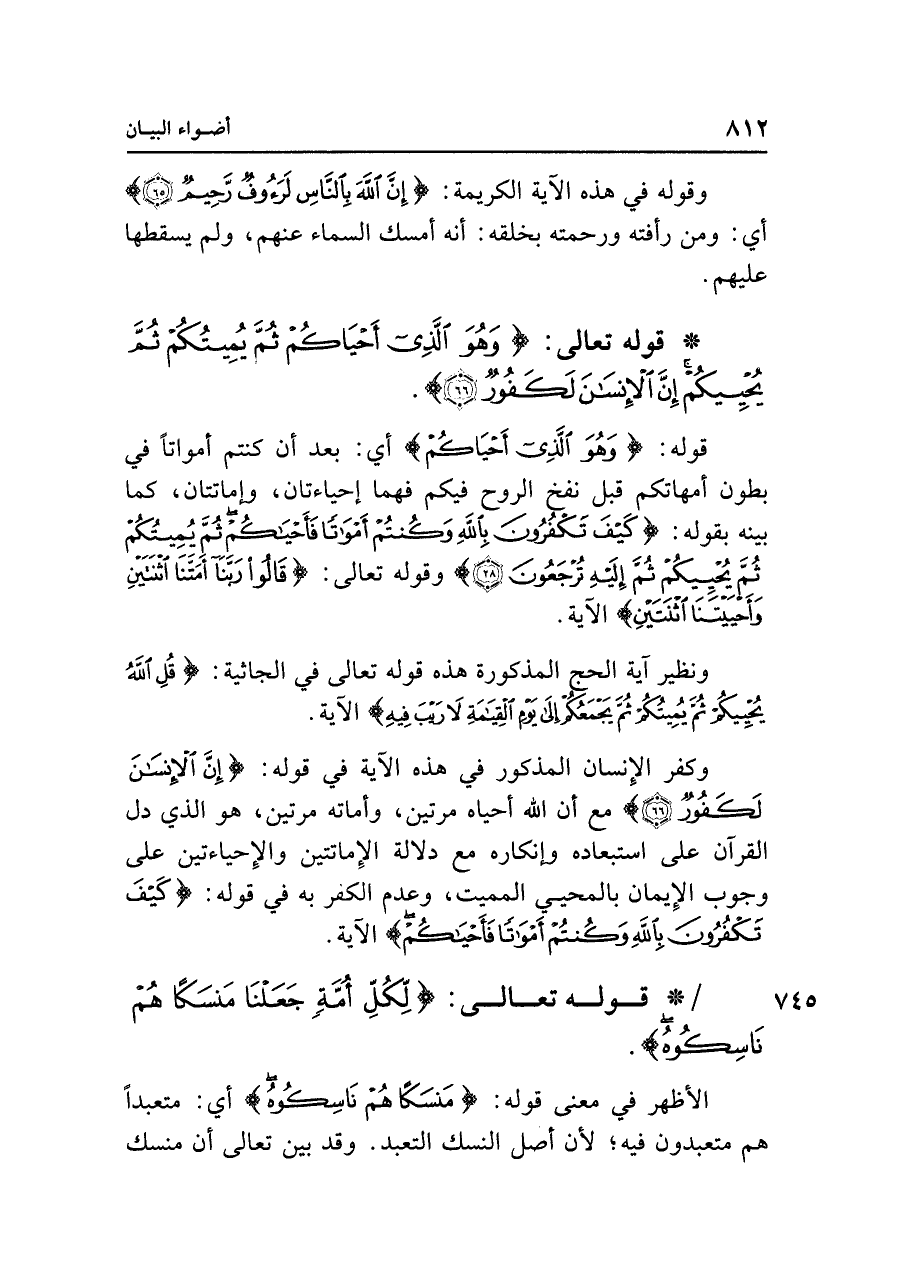 ٨١٢ أضواء البيان
وقوله في هذه الآية الكريمة: ﴿ إِنَّ ٱللَّهَ بِٱلنَّاسِ لَرَءُوفٌ رَّحِيمٌ ۝٦٥﴾
أي: ومن رأفته ورحمته بخلقه: أنه أمسك السماء عنهم، ولم يسقطها
عليهم.
* قوله تعالى: ﴿ وَهُوَ ٱلَّذِىٓ أَحْيَاكُمْ ثُمَّ يُمِيتُكُمْ ثُمَّ
يُحْيِيكُمْۗ إِنَّ ٱلْإِنسَٰنَ لَكَفُورٌ ۝٦٦﴾.
قوله: ﴿ وَهُوَ ٱلَّذِىٓ أَحْيَاكُمْ﴾ أي: بعد أن كنتم أمواتاً في
بطون أمهاتكم قبل نفخ الروح فيكم فهما إحياءتان، وإماتتان، كما
بينه بقوله: ﴿ كَيْفَ تَكْفُرُونَ بِٱللَّهِ وَكُنتُمْ أَمْوَٰتًا فَأَحْيَٰكُمْۖ ثُمَّ يُمِيتُكُمْ
ثُمَّ يُحْيِيكُمْ ثُمَّ إِلَيْهِ تُرْجَعُونَ ۝٢٨﴾ وقوله تعالى: ﴿ قَالُوا۟ رَبَّنَآ أَمَتَّنَا ٱثْنَتَيْنِ
وَأَحْيَيْتَنَا ٱثْنَتَيْنِ﴾ الآية.
ونظير آية الحج المذكورة هذه قوله تعالى في الجاثية: ﴿ قُلِ ٱللَّهُ
يُحْيِيكُمْ ثُمَّ يُمِيتُكُمْ ثُمَّ يَجْمَعُكُمْ إِلَىٰ يَوْمِ ٱلْقِيَٰمَةِ لَا رَيْبَ فِيهِ﴾ الآية.
وكفر الإنسان المذكور في هذه الآية في قوله: ﴿ إِنَّ ٱلْإِنسَٰنَ
لَكَفُورٌ ۝٦٦﴾ مع أن الله أحياه مرتين، وأماته مرتين، هو الذي دل
القرآن على استبعاده وإنكاره مع دلالة الإماتتين والإحياءتين على
وجوب الإيمان بالمحيي المميت، وعدم الكفر به في قوله: ﴿ كَيْفَ
تَكْفُرُونَ بِٱللَّهِ وَكُنتُمْ أَمْوَٰتًا فَأَحْيَٰكُمْۖ﴾ الآية.
٧٤٥ / * قوله تعالى: ﴿ لِّكُلِّ أُمَّةٍ جَعَلْنَا مَنسَكًا هُمْ
نَاسِكُوهُۖ﴾.
الأظهر في معنى قوله: ﴿ مَنسَكًا هُمْ نَاسِكُوهُۖ﴾ أي: متعبداً
هم متعبدون فيه؛ لأن أصل النسك التعبد. وقد بين تعالى أن منسك